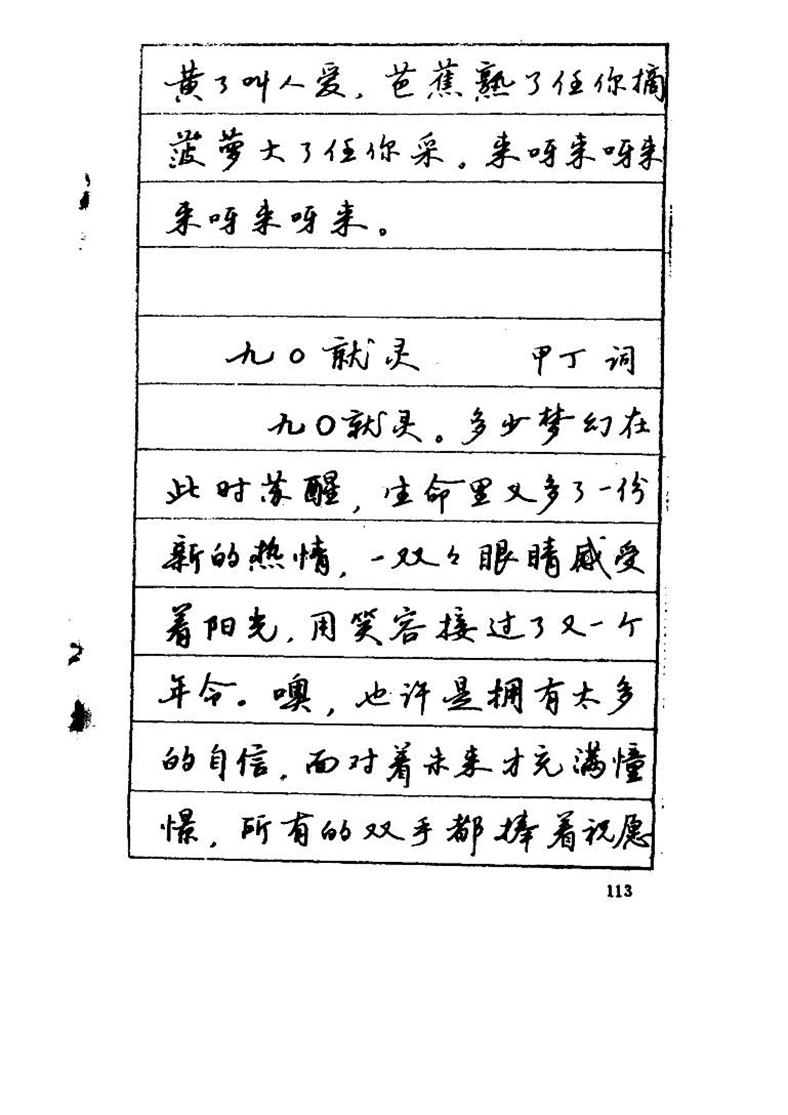 黄了叫人爱，芭蕉熟了任你摘
菠萝大了任你采。来呀来呀来
来呀来呀来。
九〇就灵 甲丁 词
九〇就灵。多少梦幻在
此时苏醒，生命里又多了一份
新的热情，一双々眼睛感受
着阳光，用笑容接过了又一个
年令。噢，也许是拥有太多
的自信，面对着未来才充满憧
憬，所有的双手都捧着祝愿
113